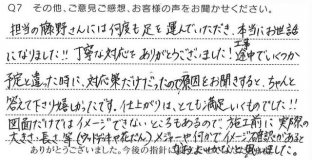 Q7 その他、ご意見ご感想、お客様の声をお聞かせください。
担当の藤野さんには何度も足を運んでいただき、本当にお世話
になりました!!丁寧な対応をありがとうございました!工事途中でいくつか
予定と違った時に、対応策だけだったので原因をお聞きすると、ちゃんと
答えて下さり嬉しかったです。仕上がりは、とても満足しいくものでした!!
図面だけではイメージできないところもあるので、施工前に実際の
大きさ・長さ等(ウッドデキや花だん)メジャーや何かでイメージ確認があると
ありがとうございました。今後の指針に
なおよせかなと思いました。